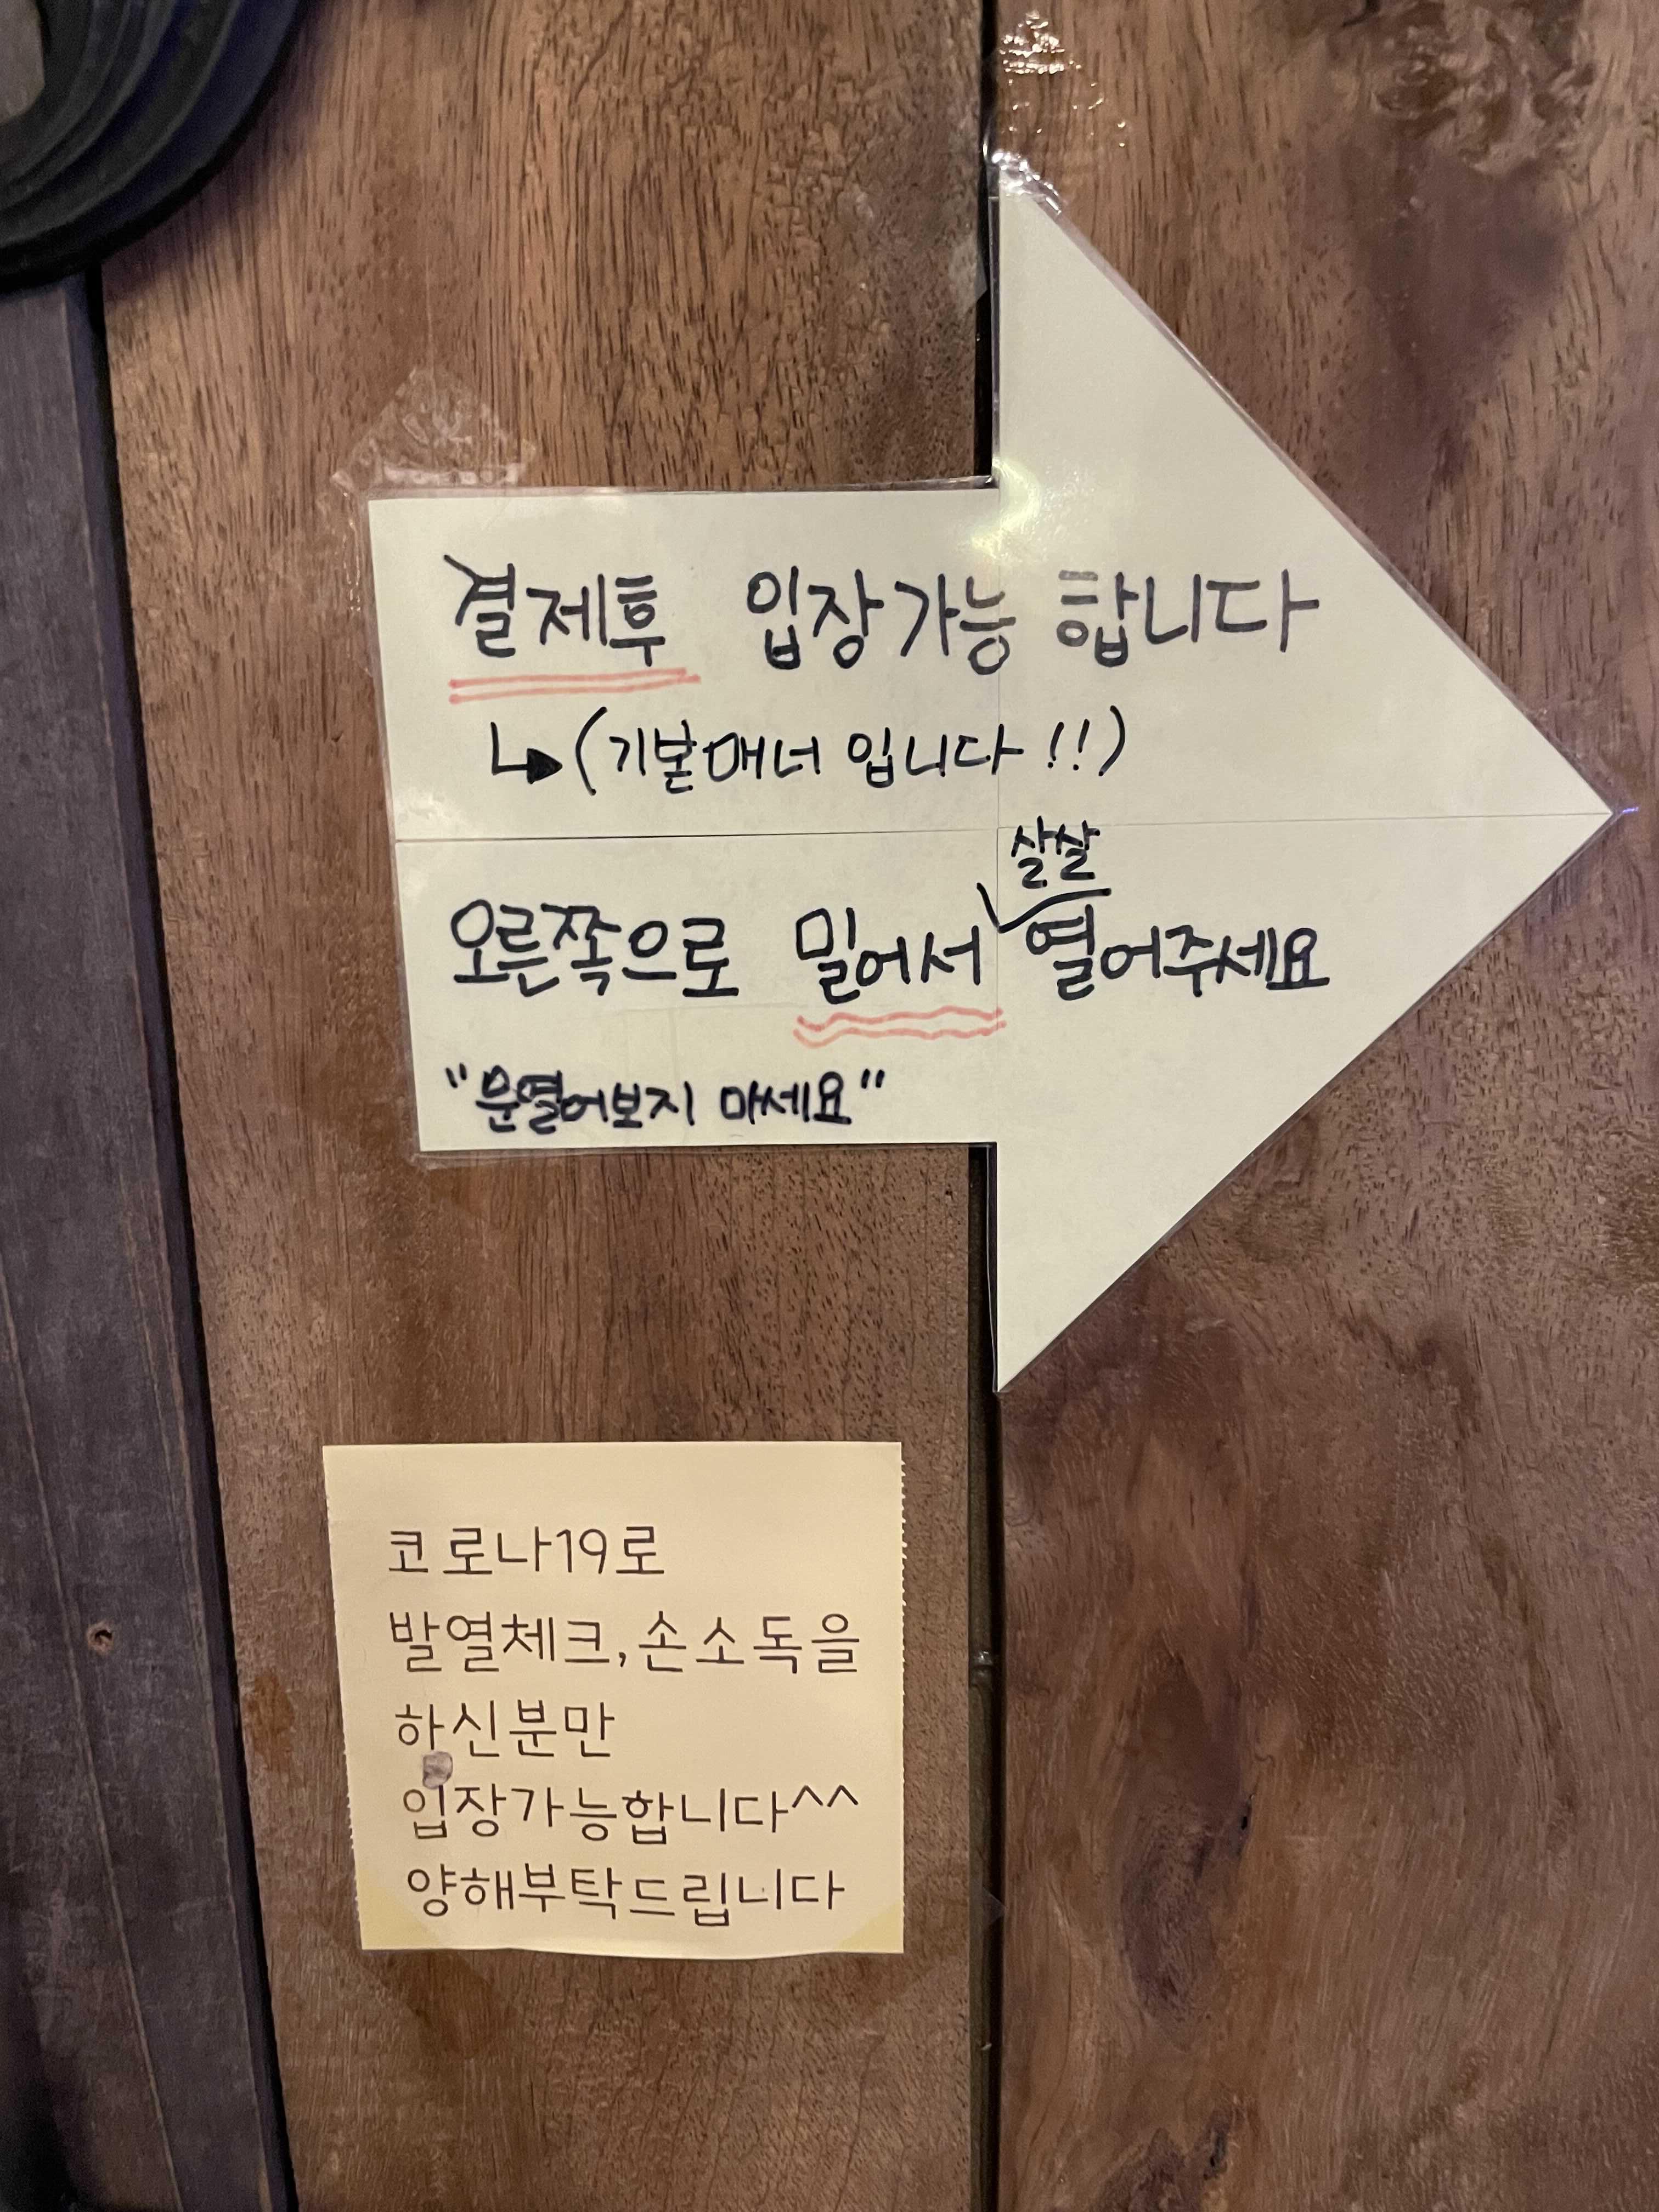 결제후 입장가능 합니다
(기본매너 입니다!!)
살살
오른쪽으로 밀어서 열어주세요
"문열어보지 마세요"
코로나19로
발열체크, 손소독을
하신분만
입장가능합니다^^
양해부탁드립니다